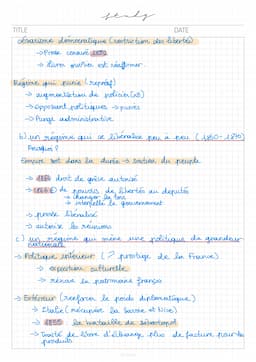 study
TITLE DATE
césarisme démocratique (restriction des libertés)
→ Presse censuré 1852
→ livret ouvrier est réaffirmer.
Régime qui punie (repressif)
→ augmentation de policier
→ opposant politiques →
→ Purge administrative
b) un régime qui se libéralise peu à peu (1860-1870)
Pourquoi ?
Empire est dans la durée → soutien du peuple
→ 1864 droit de grève autorisé
→ de pouvoirs de libertés au députés
→ changer les lois
→ interpelle le gouvernement
→ presse libéralisé
→ autorise la réunions
c) un régime qui mène une politique de grandeur
nationale
→ Politique intérieur (↗ prestige de la France)
→ expositions culturelle
→ rénove le patrimoine français
→ Extérieur (renforcer le poids diplomatique)
→ Italie (récupère la Savoie et Nice)
→ 1855 la bataille de Sébastopol
→ Traité de libre d'échange, plus de facture pour les
produits